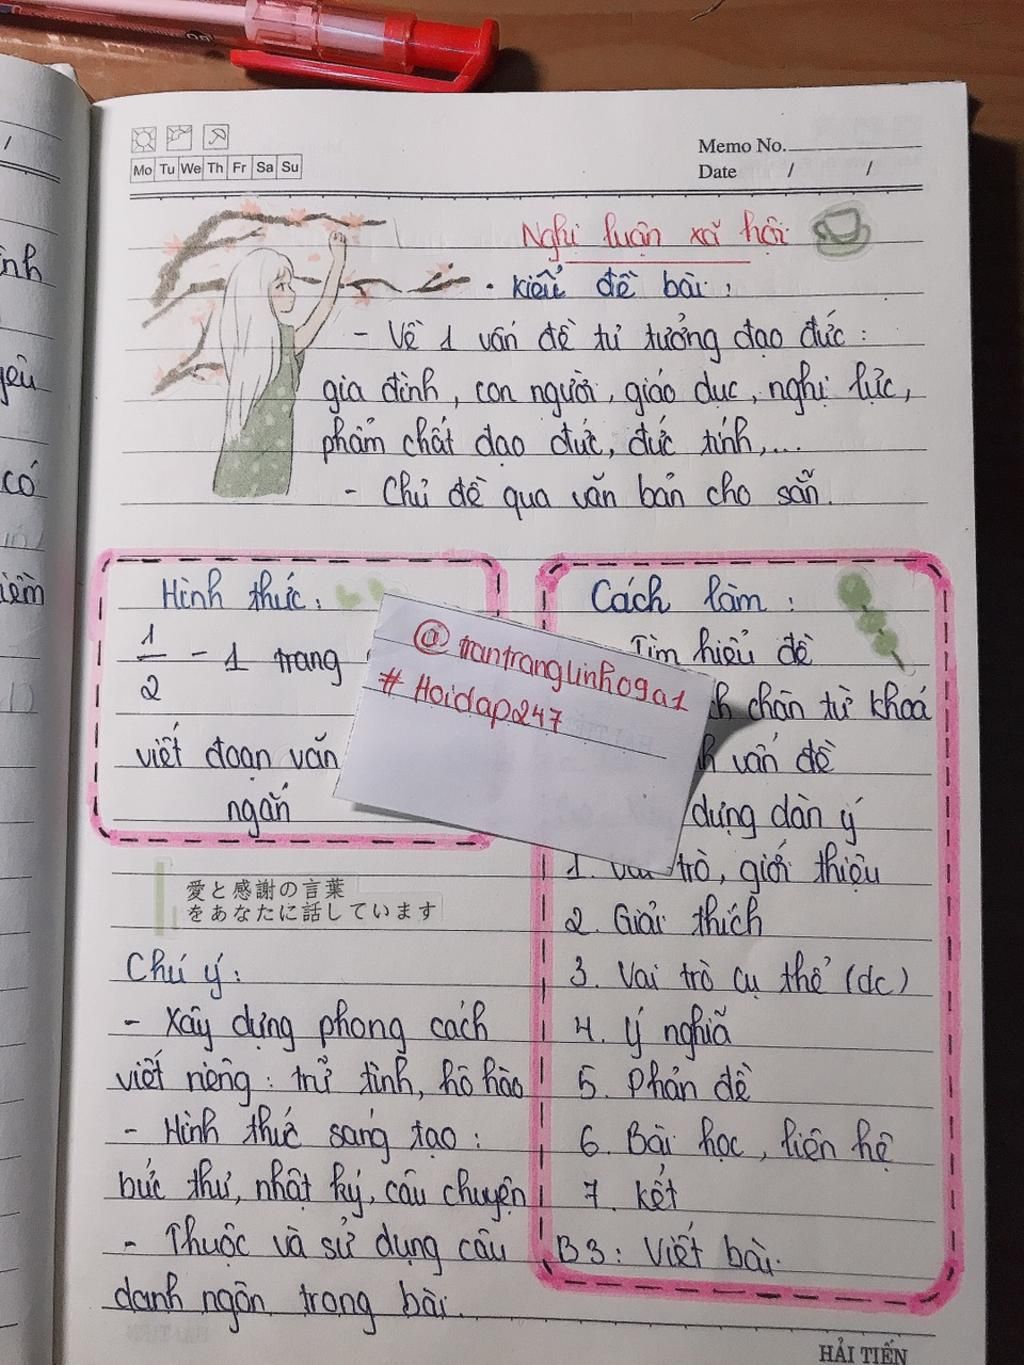 Mo Tu We Th Fr Sa Su
Memo No.
Date / /
Nghị luận xã hội
• Kiểu đề bài :
- Về 1 vấn đề tư tưởng đạo đức :
gia đình, con người, giáo dục, nghị lực,
phẩm chất đạo đức, đức tính,...
- Chủ đề qua văn bản cho sẵn.
Hình thức :
1/2 - 1 trang
viết đoạn văn
ngắn
@trantranglinh09a1
#Hoidap247
Cách làm :
Tìm hiểu đề
chân từ khoá
vấn đề
dựng dàn ý
1. Vai trò, giới thiệu
2. Giải thích
3. Vai trò cụ thể (dc)
4. Ý nghĩa
5. Phản đề
6. Bài học, liên hệ
7. Kết
B3: Viết bài.
愛と感謝の言葉
をあなたに話しています
Chú ý :
- Xây dựng phong cách
viết riêng : trữ tình, hô hào
- Hình thức sáng tạo :
bức thư, nhật ký, câu chuyện
- Thuộc và sử dụng câu
danh ngôn trong bài.
HẢI TIẾN
nh
yêu
có
iểm